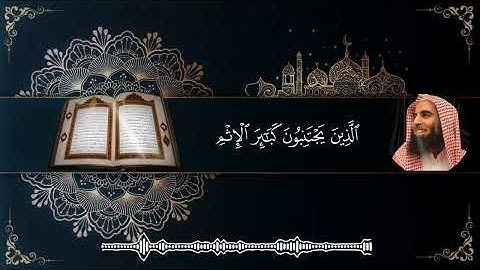 ٱلَّذِينَ يَجْتَنِبُونَ كَبَٰٓئِرَ ٱلْإِثْمِ